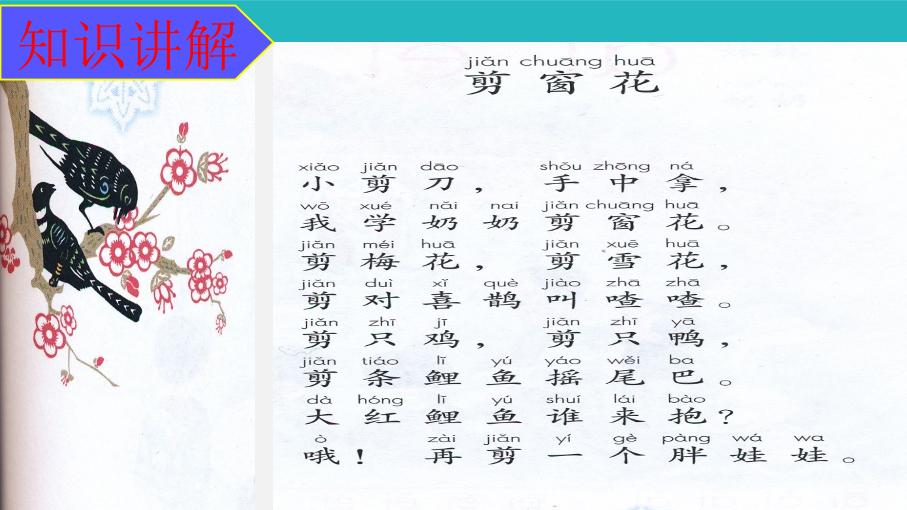 知识讲解
jiǎn chuāng huā
剪 窗 花
xiǎo jiǎn dāo shǒu zhōng ná
小 剪 刀 ， 手 中 拿 ，
wǒ xué nǎi nai jiǎn chuāng huā
我 学 奶 奶 剪 窗 花 。
jiǎn méi huā jiǎn xuě huā
剪 梅 花 ， 剪 雪 花 ，
jiǎn duì xǐ què jiào zhā zhā
剪 对 喜 鹊 叫 喳 喳 。
jiǎn zhī jī jiǎn zhī yā
剪 只 鸡 ， 剪 只 鸭 ，
jiǎn tiáo lǐ yú yáo wěi ba
剪 条 鲤 鱼 摇 尾 巴 。
dà hóng lǐ yú shuí lái bào
大 红 鲤 鱼 谁 来 抱 ？
ò zài jiǎn yí gè pàng wá wa
哦 ！ 再 剪 一 个 胖 娃 娃 。